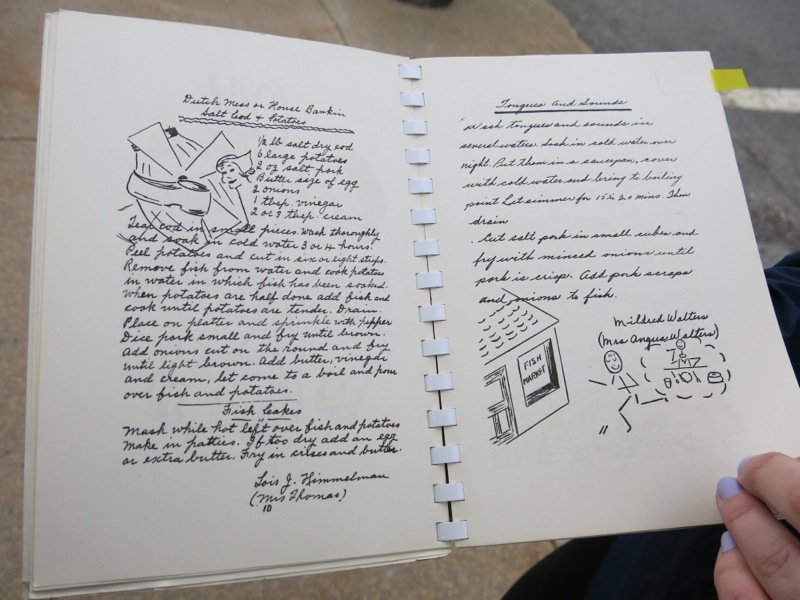 Dutch Mess or House Bankin
Salt Cod & Potatoes
1/2 lb salt dry cod
6 large potatoes
2 oz salt pork
Butter size of egg
2 onions
1 tbsp. vinegar
2 or 3 tbsp. cream
Tear cod in small pieces. Wash thoroughly
and soak in cold water 3 or 4 hours.
Peel potatoes and cut in six or eight strips.
Remove fish from water and cook potatoes
in water in which fish has been soaked.
When potatoes are half done add fish and
cook until potatoes are tender. Drain.
Place on platter and sprinkle with pepper
Dice pork small and fry until brown.
Add onions cut on the round and fry
until light brown. Add butter, vinegar
and cream, let come to a boil and pour
over fish and potatoes.
Fish Cakes
Mash while hot left over fish and potatoes
make in patties. If too dry add an egg
or extra butter. Fry in crises and butter.
Lois J. Himmelman
(Mrs Thomas)
10
Tongues And Sounds
Wash tongues and sounds in
several waters. Soak in cold water over
night. Put them in a saucepan, cover
with cold water and bring to boiling
point Let simmer for 15 to 20 mins. Then
drain
. Cut salt pork in small cubes and
fry with minced onions until
pork is crisp. Add pork scraps
and onions to fish.
Mildred Walters
(Mrs Angus Walters)
FISH
MARKET
11